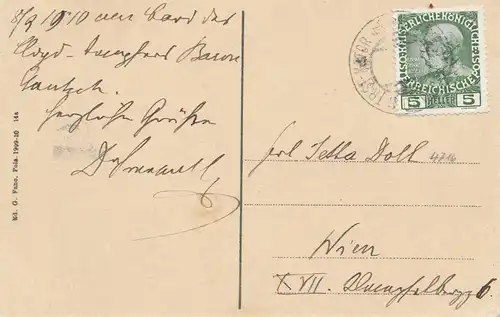 8/9 1910 von Bord des
Lloyd-dampfers Baron
Gautsch.
Herzliche Grüße
Ed. G. Fano, Pola. 1909-10 14a
KAISERLICHE KÖNIGLICHE
ÖSTERREICHISCHE
5 HELLER 5
Frl. Jetta Doll 4716
Wien
XVII.
6.